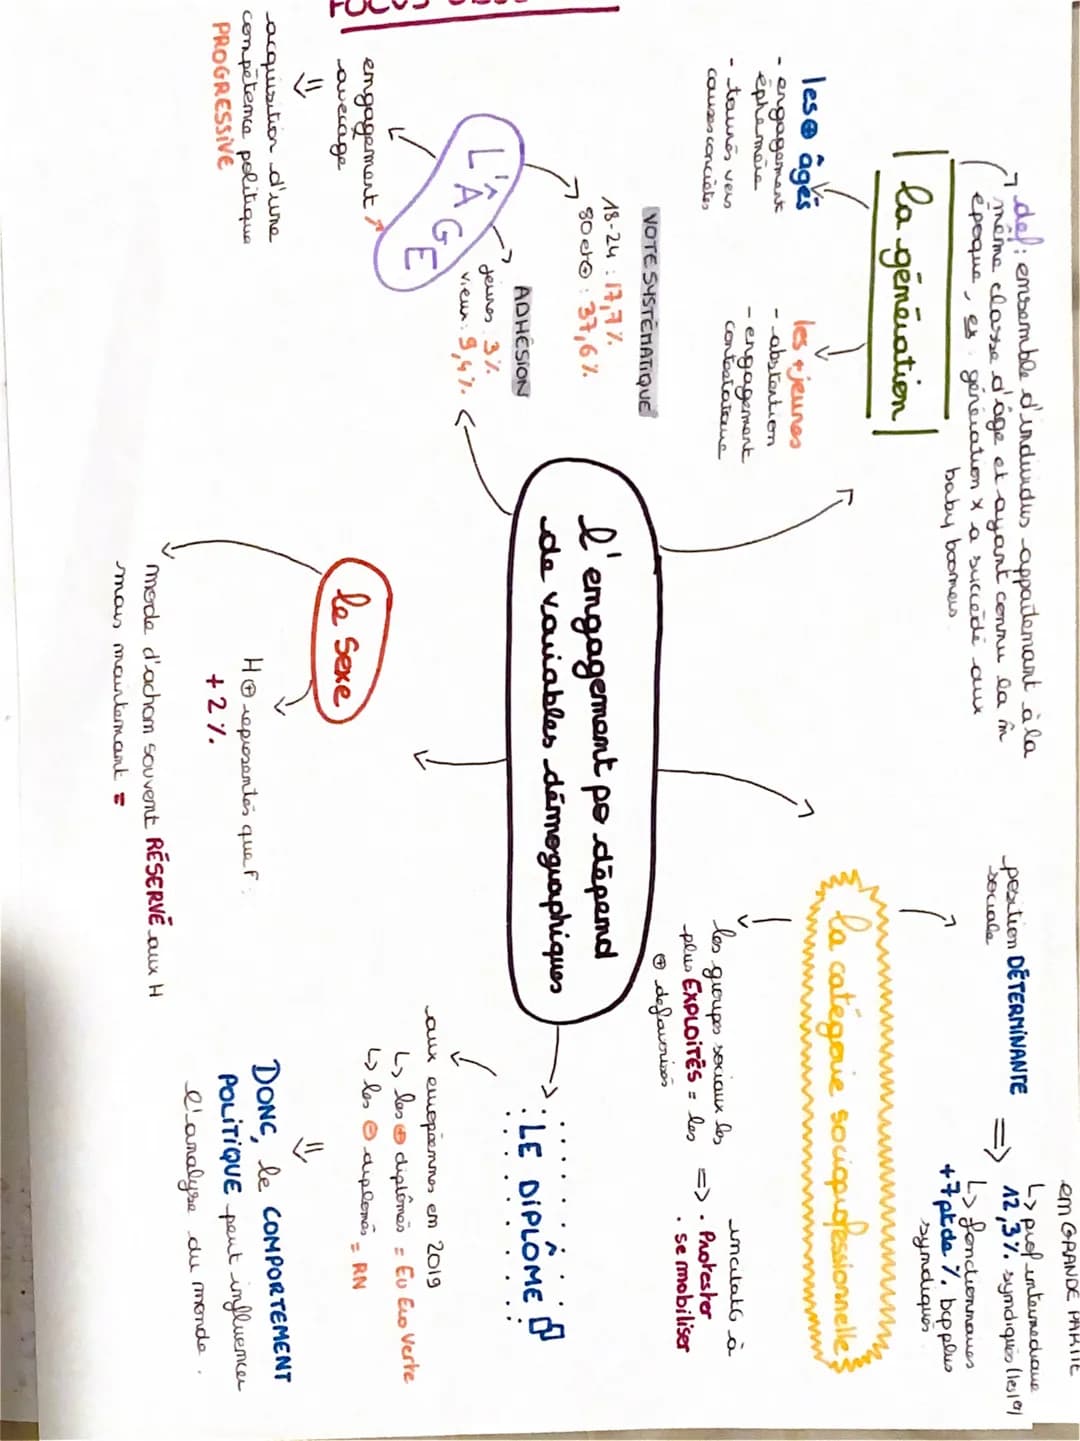 def : ensemble d'individus appartenant à la
même classe d'âge et ayant connu la m̂
époque, ex : génération X a succédé aux
baby boomers.
la génération
les ⊕ âgés
- engagement
éphémère
- tournés vers
causes concrètes
les + jeunes
- abstention
- engagement
contestataire
EN GRANDE PARTIE
position DÉTERMINANTE
sociale
=> ↳ prof intermédiaire
12,3% syndiqués (les
↳ fonctionnaires
+7 pt de % bcp plus
syndiqués
la catégorie socioprofessionnelle
les groupes sociaux les
plus EXPLOITÉS = les
⊕ défavorisés
=>
à
. Protester
. se mobiliser
VOTE SYSTÉMATIQUE
18-24 : 17,7%
80 et ⊕ : 37,6%
L'ÂGE
ADHÉSION
jeunes : 3%
vieux : 9,4%
engagement ↗
avec age
⇓
acquisition d'une
compétence politique
PROGRESSIVE
FOCUS
l'engagement po dépend
de variables démographiques
LE DIPLÔME
aux européennes en 2019
↳ les ⊕ diplômés = Eu Eco Verte
↳ les ⊖ diplomés = RN
⇓
DONC, le COMPORTEMENT
POLITIQUE peut influencer
l'analyse du monde.
le sexe
H ⊕ représentés que F :
+ 2%
mode d'action souvent RÉSERVÉ aux H
mais maintenant =